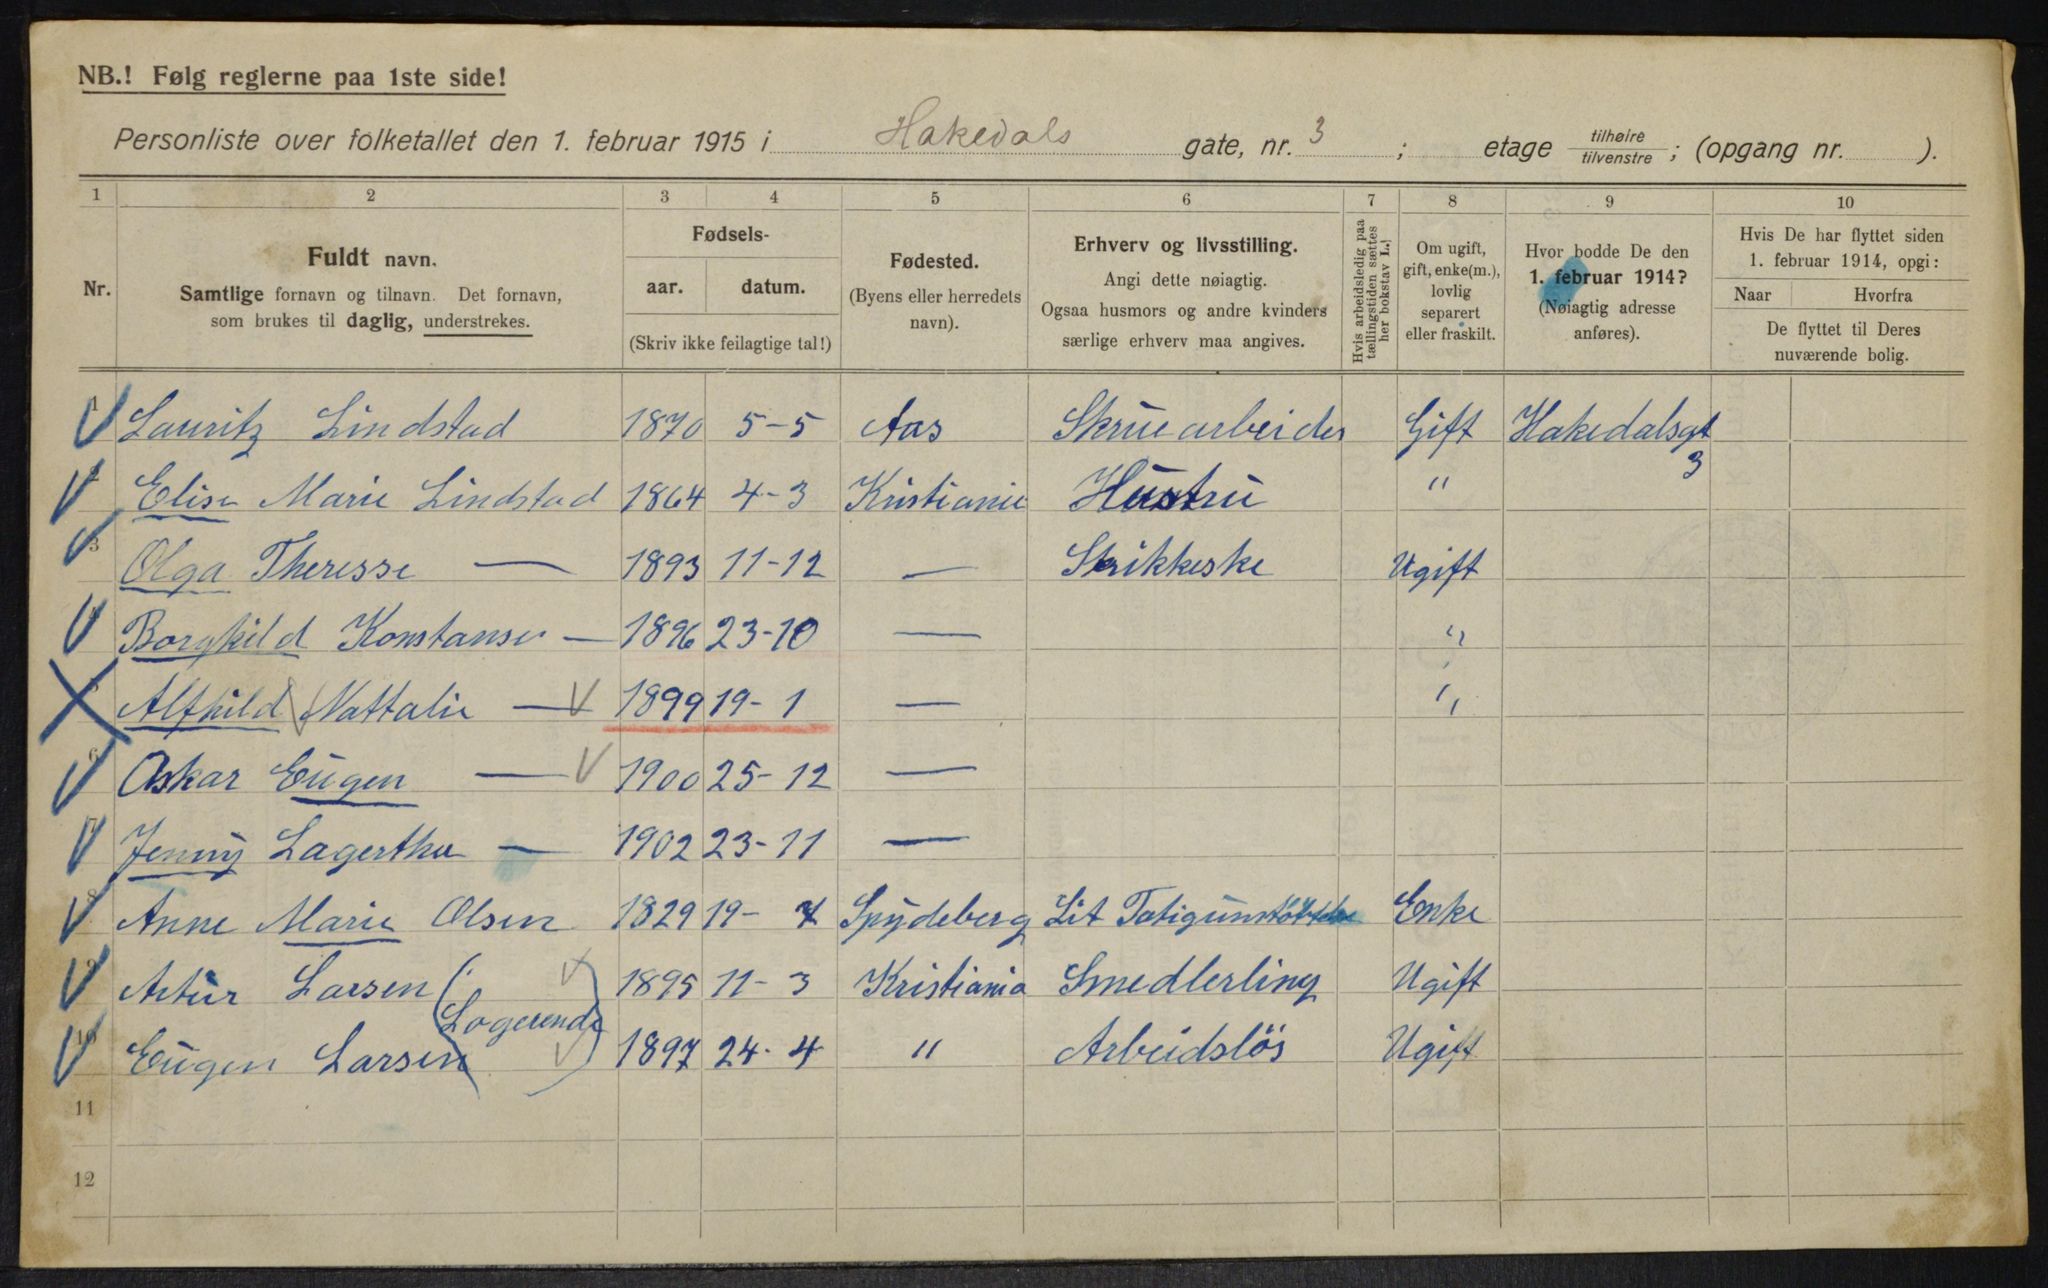 NB.! Følg reglerne paa 1ste side!
Personliste over folketallet den 1. februar 1915 i Hakedals gate, nr. 3 ; etage tilhøire tilvenstre ; (opgang nr. ).
1 2 3 4 5 6 7 8 9 10
Nr.
Fuldt navn.
Samtlige fornavn og tilnavn. Det fornavn,
som brukes til daglig, understrekes.
Fødsels-
aar. datum.
(Skriv ikke feilagtige tal!)
Fødested.
(Byens eller herredets
navn).
Erhverv og livsstilling.
Angi dette nøiagtig.
Ogsaa husmors og andre kvinders
særlige erhverv maa angives.
Hvis arbeidsledig paa
tællingstiden sættes
her bokstav L.)
Om ugift,
gift, enke(m.),
lovlig
separert
eller fraskilt.
Hvor bodde De den
1. februar 1914?
(Nøiagtig adresse
anføres).
Hvis De har flyttet siden
1. februar 1914, opgi:
Naar Hvorfra
De flyttet til Deres
nuværende bolig.
1 Lauritz Lindstad 1870 5-5 Aas Skruearbeider Gift Hakedalsgt
3
2 Elise Marie Lindstad 1864 4-3 Kristiania Hustru "
3 Olga Theresse — 1893 11-12 — Strikkeske Ugift
4 Borghild Konstanse — 1896 23-10 — "
5 Alfhild Nattalie — 1899 19-1 — "
6 Oskar Eugen — 1900 25-12 —
7 Jenny Lagertha — 1902 23-11 —
8 Anne Marie Olsen 1829 19- Spydeberg Enke
9 Artur Larsen 1895 11-3 Kristiania Smedlerling Ugift
(Logerende)
10 Eugen Larsen 1897 24-4 " Arbeidslös Ugift
11
12